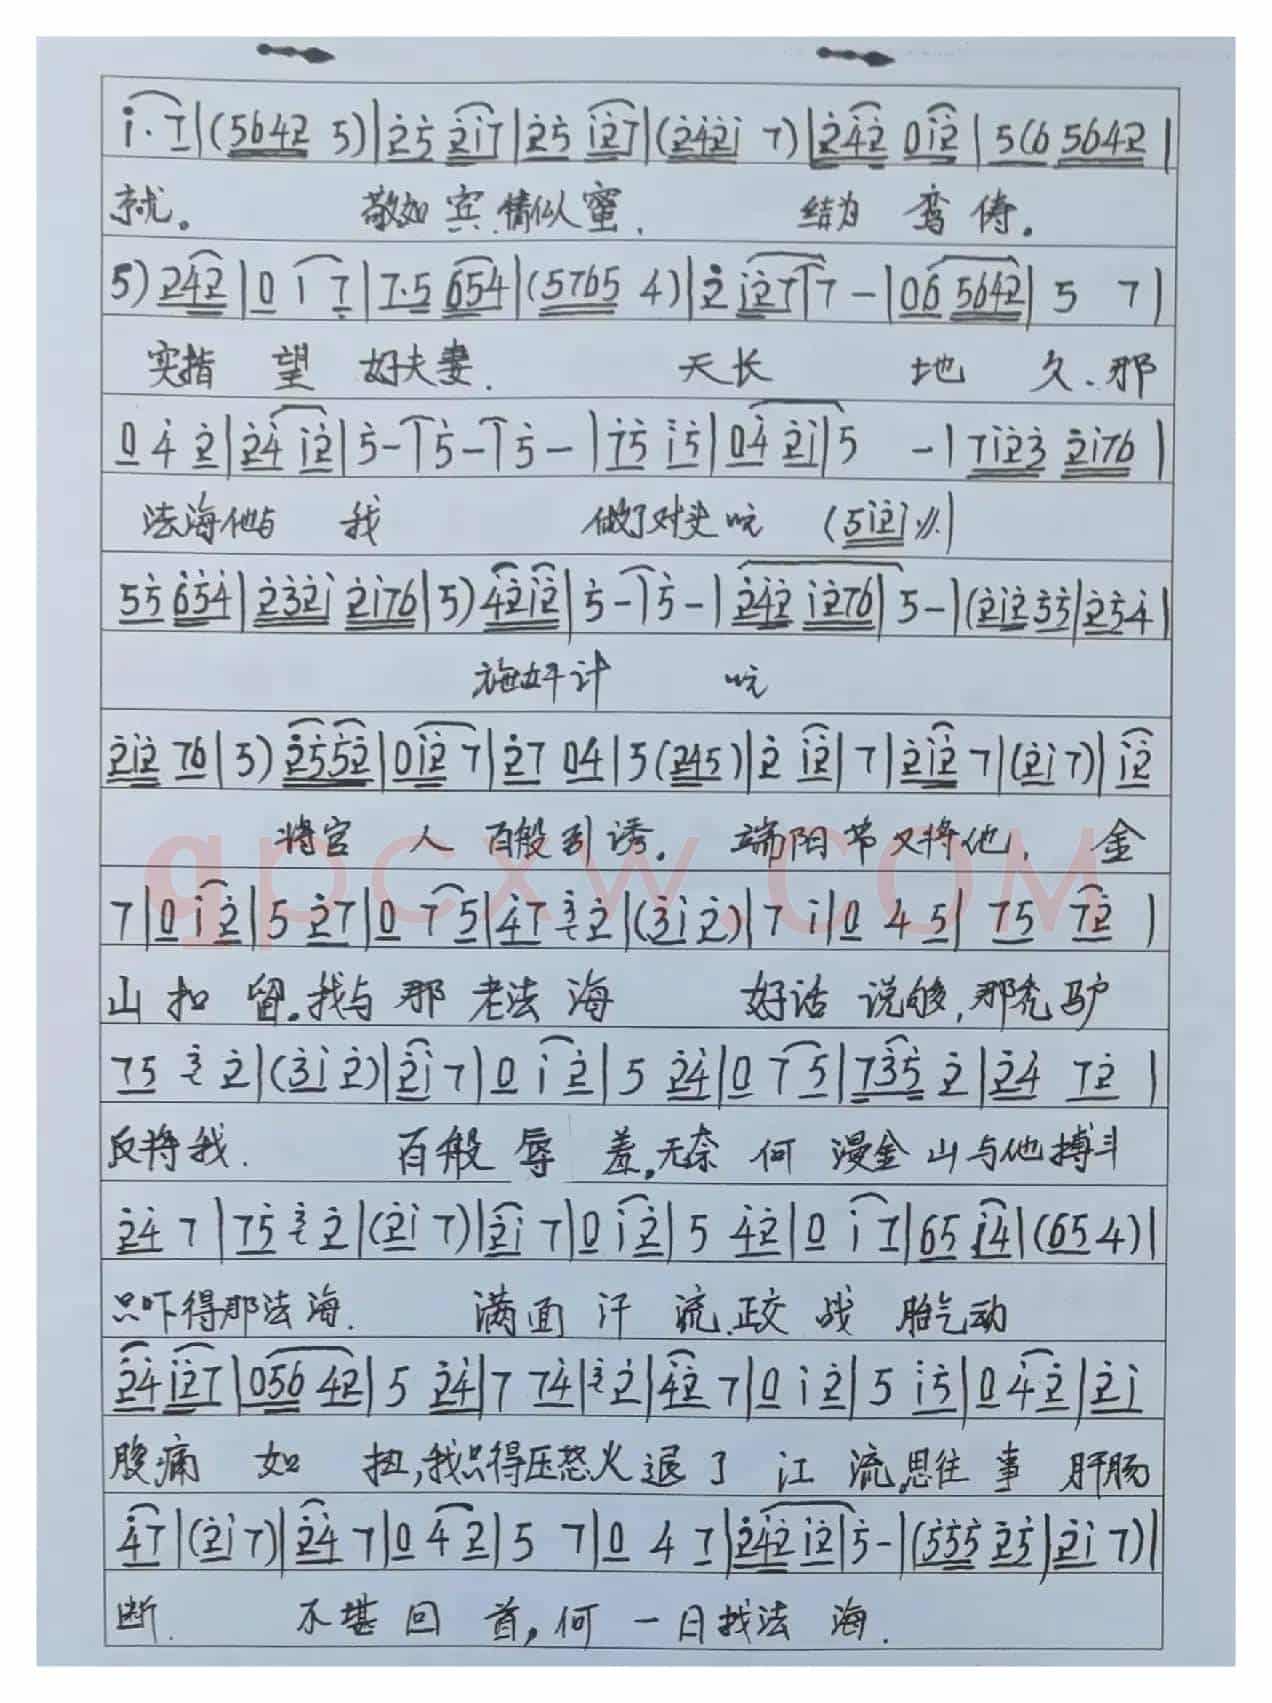 i·7|(5642 5)|25 2i7|25 i27|(242i 7)|242 0i2|5(6 5642|
就。 敬如宾,情似蜜, 结为鸾俦。
5)242|0 i 7|7·5 654|(5765 4)|2 i27|7 -|06 5642|5 7|
实指望好夫妻. 天长地久、那
0 4 2|24 i2|5-|5-|5-|75 i5|04 2i|5 -|7i23 2i76|
法海他与我 做了对头吭 (5i2i〃.)
55 654|232i 2i76|5)42i2|5-|5-|242 i276|5-|(2i2 35|254|
施奸计 吭
2i2 76|5)2552|0i2 7|27 04|5(245)|2 i2|7|2i2 7|(2i7)|i2
将官人百般引诱。端阳节又将他, 金
qpcxw.com
7|0 i 2|5 27|0 7 5|47 2|(3i 2)|7 i|0 4 5|75 72|
山扣留。我与那老法海 好话说够,那秃驴
75 2|(3i 2)|2i 7|0 i 2|5 24|0 7 5|735 2|24 72|
反将我. 百般辱羞,无奈何漫金山与他搏斗
24 7|75 2|(2i 7)|2i 7|0 i2|5 42|0 i 7|65 i4|(65 4)|
只吓得那法海. 满面汗流.正交战胎气动
24 i27|056 42|5 24|7 74|2|42 7|0 i 2|5 i5|0 4 2|2i
腹痛如扭,我只得压怒火退了江流,思往事肝肠
47|(2i 7)|24 7|0 4 2|5 7|0 4 7|242 i2|5-|(555 25|2i 7)|
断. 不堪回首,何一日找法海.